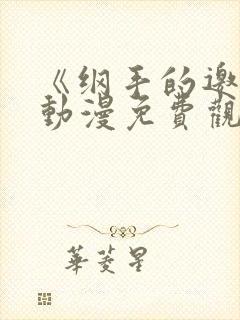 《纲手的邀
動漫免費觀
華菱星